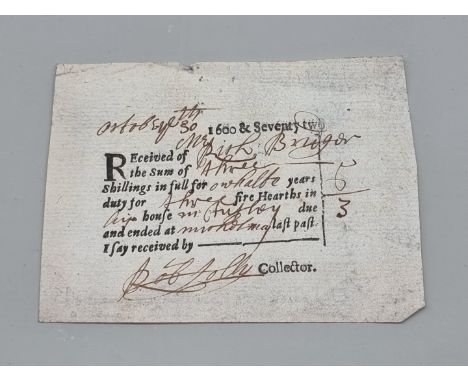 October the
30 1600 & Seventy two
REceived of Mr Rich Bridger
the Sum of three
Shillings in full for one halfe years
duty for three fire Hearths in
his house in due
and ended at last past.
I say received by
Rob Collector.
3